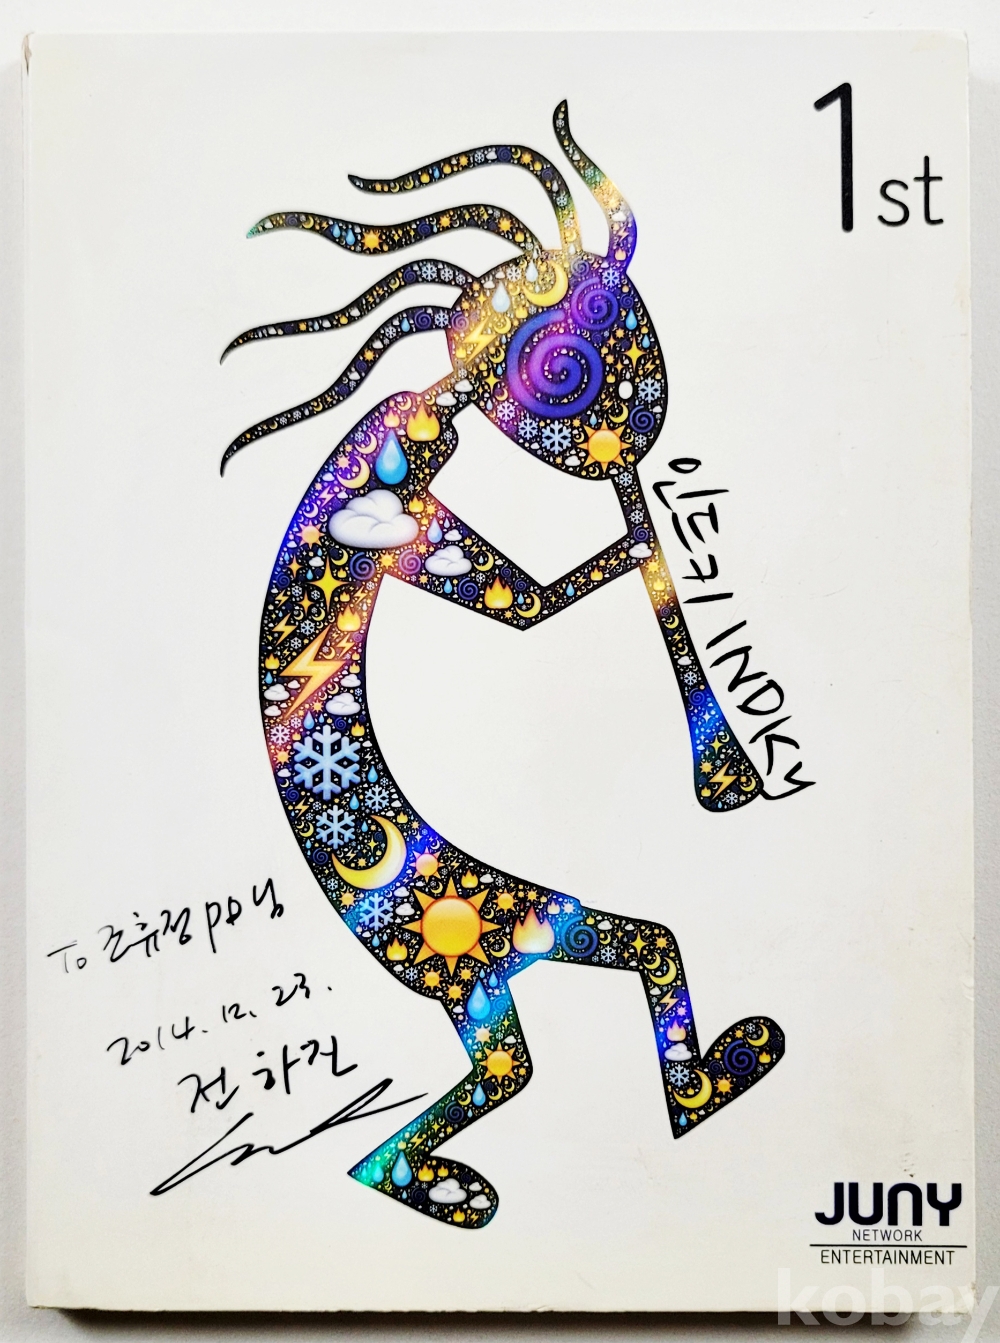 1st
인디키 INDKY
To 조휴정 PD님
2014.12.23.
전하건
JUNY
NETWORK
ENTERTAINMENT
kobay